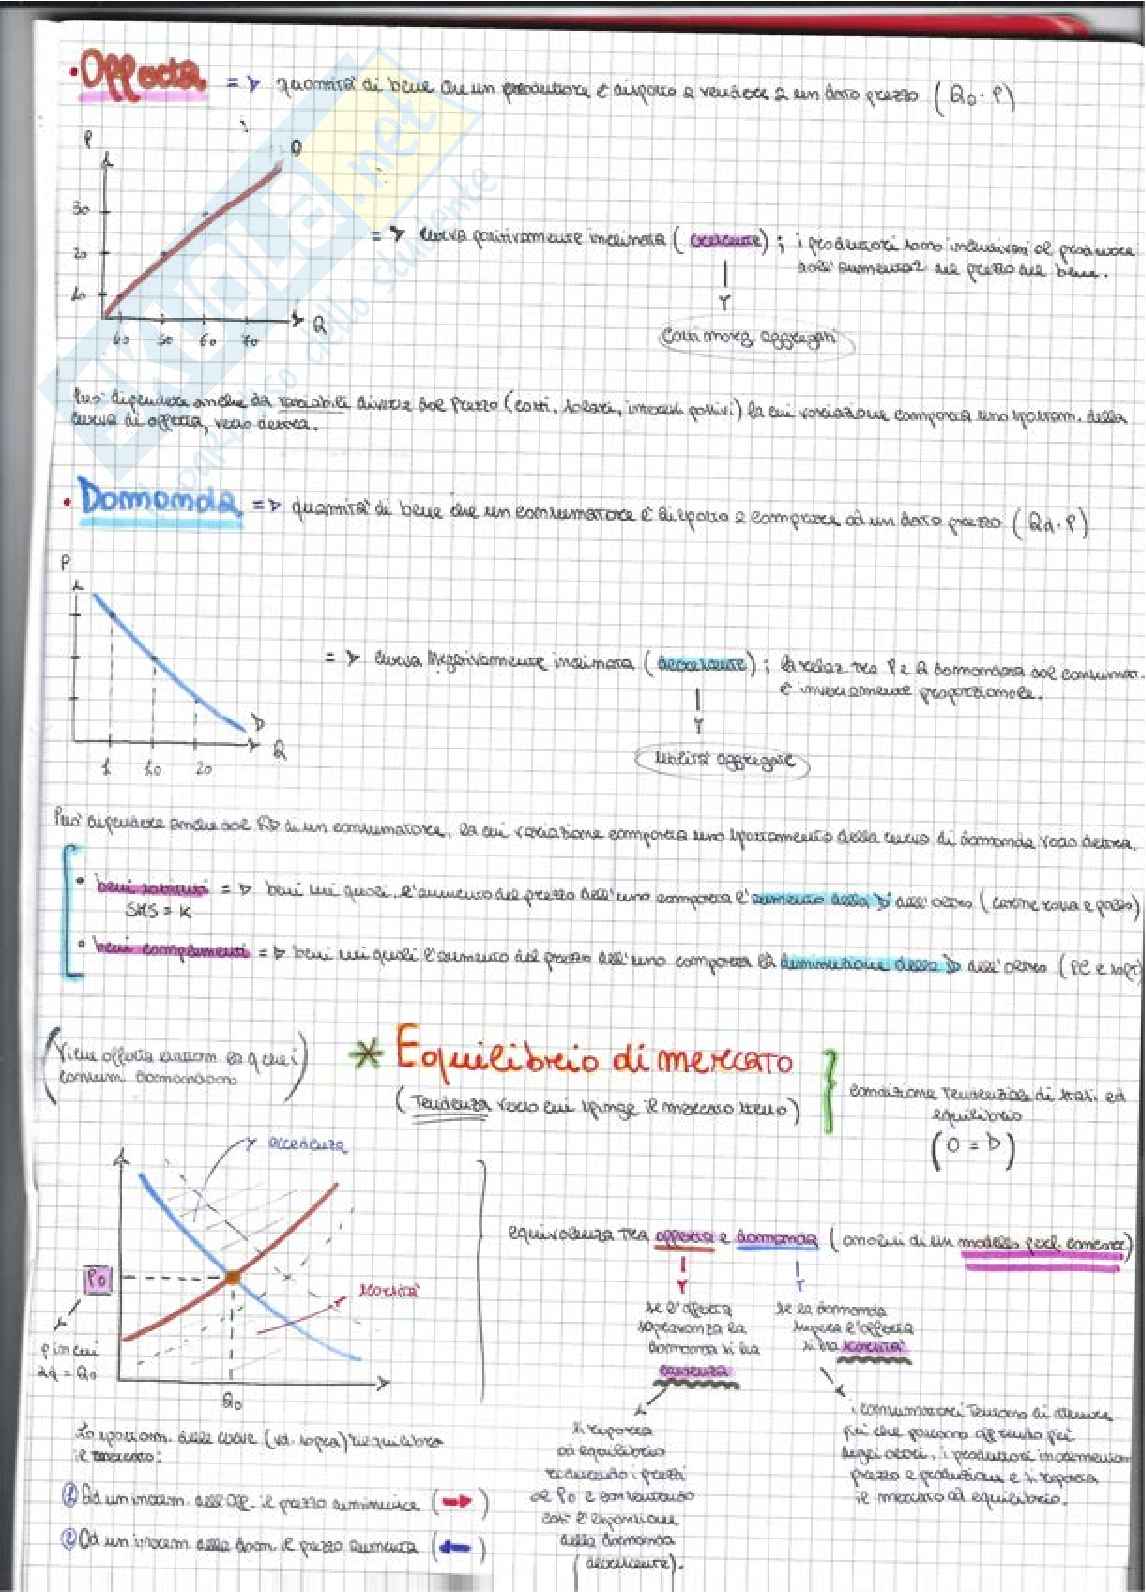 • Offerta => quantità di bene che un produttore è disposto a vendere a un dato prezzo (Qo·P)
P
O
30
20
10
Q
40 50 60 70
=> curva positivamente inclinata (crescente); i produttori sono incentivati a produrre
dall'aumentare del prezzo del bene.
Costi marg. aggregati
Può dipendere anche da variabili diverse dal prezzo (costi, salari, interessi passivi) la cui variazione comporta uno spostam. della
curva di offerta, verso destra.
• Domanda => quantità di bene che un consumatore è disposto a comprare ad un dato prezzo (Qd·P)
P
D
Q
1 10 20
=> curva negativamente inclinata (decrescente); la relaz. tra P e Q domandata dal consumat.
è inversamente proporzionale.
Utilità aggregate
Può dipendere anche dal RD di un consumatore, la cui variazione comporta uno spostamento della curva di domanda verso destra.
• beni sostituti => beni nei quali l'aumento del prezzo dell'uno comporta l'aumento della D dell'altro (carne rossa e pollo)
SMS = K
• beni complementi => beni nei quali l'aumento del prezzo dell'uno comporta la diminuzione della D dell'altro (PC e soft)
(Viene offerta esattam. la q che i
consum. domandano)
* Equilibrio di mercato
(Tendenza verso cui spinge il mercato stesso)
condizione tendenziale di stati ed
equilibrio
(O = D)
eccedenza
scarsità
Po
P in cui
Qd = Qo
Qo
equivalenza tra offerta e domanda (analisi di un modello perf. concorr.)
se l'offerta
sopravanza la
domanda si ha
eccedenza
se la domanda
supera l'offerta
si ha scarsità
si riporta
ad equilibrio
riducendo i prezzi
al Po e consentendo
così l'espansione
della domanda
(decrescente).
i consumatori tentano di ottenere
più che possono offrendo più
degli altri, i produttori incrementano
prezzo e produzione e si riporta
il mercato ad equilibrio.
Lo spostam. delle curve (vd. sopra) riequilibra
il mercato:
① Ad un increm. dell'Off. il prezzo diminuisce (→)
② Ad un increm. della dom. il prezzo aumenta (←)
skuola.net